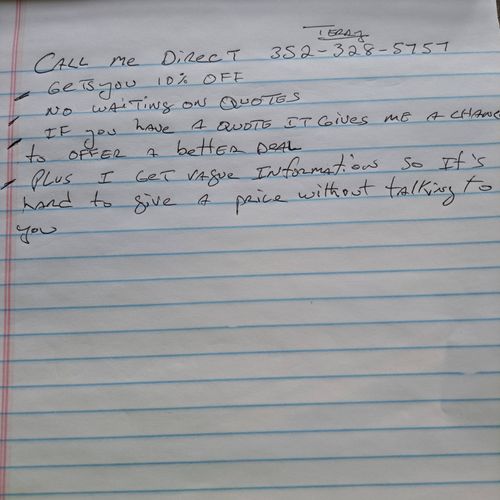 Terry
Call me Direct 352-328-5757
- Gets you 10% OFF
- No waiting on Quotes
- IF you have a Quote IT Gives me a chance
to offer a better Deal
- Plus I Get vague Informations so It's
hard to give a price without talking to
you